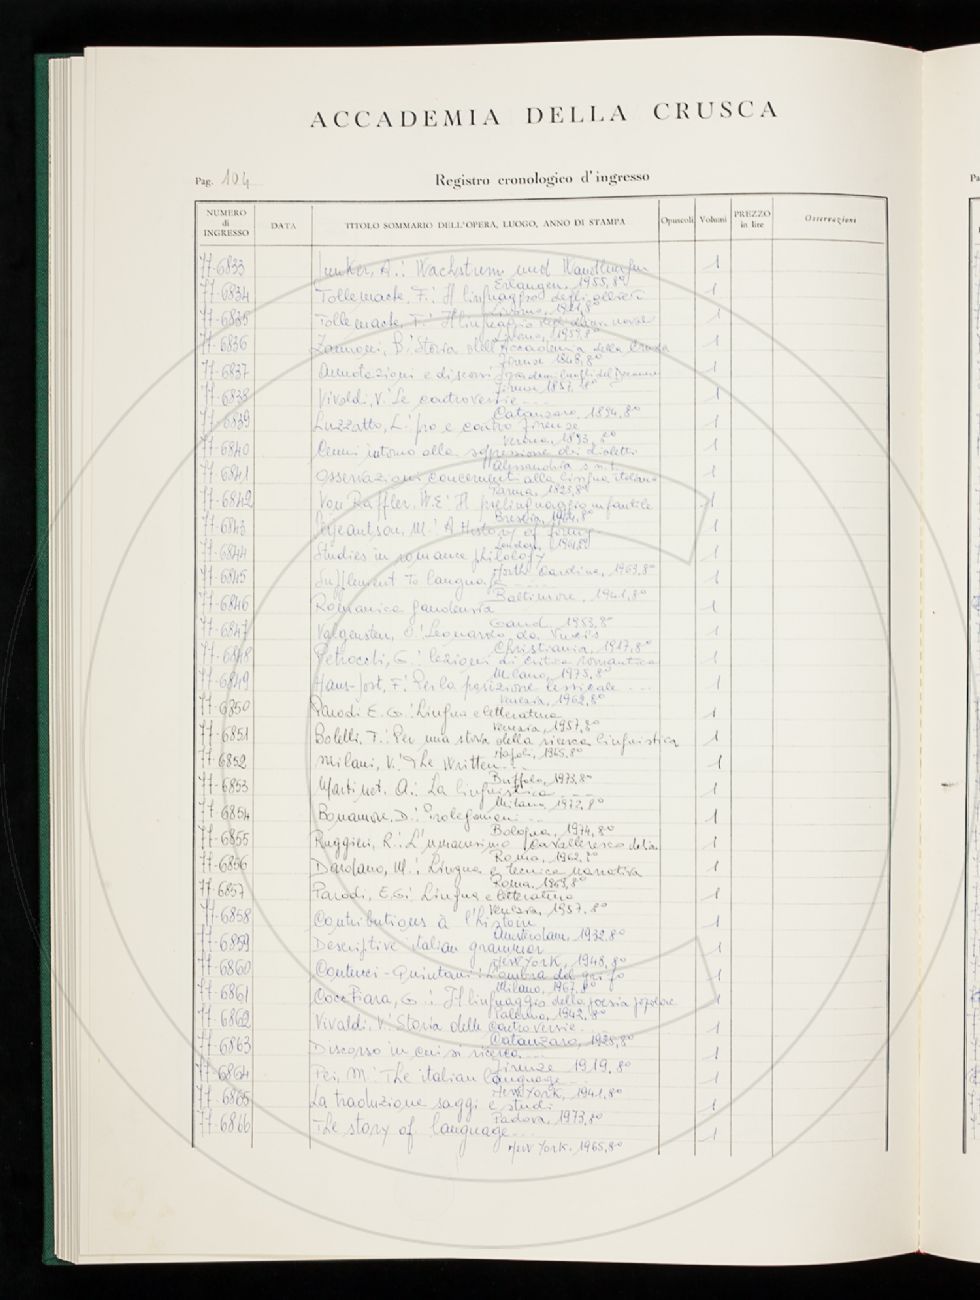 ACCADEMIA DELLA CRUSCA
Pag. 104
Registro cronologico d'ingresso
NUMERO di INGRESSO DATA TITOLO SOMMARIO DELL'OPERA, LUOGO, ANNO DI STAMPA Opuscoli Volumi PREZZO in lire Osservazioni
77-6833 Junker, A.: Wachstum und Wandlungen 1
Erlangen, 1955, 8°
77-6834 Tollemache, F.: Il linguaggio degli 1
8°
77-6835 Tollemache, F.: Il linguaggio 1
8°
77-6836 Zannoni, B.: Storia dell'Accademia della Crusca 1
Firenze 1848, 8°
77-6837 Annotazioni e discorsi 1
Firenze 1857, 8°
77-6838 Vivaldi, V.: Le controversie ... 1
Catanzaro, 1894, 8°
77-6839 Luzzatto, L.: pro e contro Firenze 1
Verona, 1893, 8°
77-6840 Cenni intorno alla soppressione dei dialetti 1
Alessandria s.n.t.
77-6841 Osservazioni concernenti alla lingua italiana 1
Parma, 1823, 8°
77-6842 Von Raffler, W.E.: Il prelinguaggio infantile 1
Brescia, 1964, 8°
77-6843 M.: A History of 1
London, 8°
77-6844 Studies in romance philology 1
North Carolina, 1963, 8°
77-6845 Supplement to language ... 1
Baltimore, 1941, 8°
77-6846 Romanica gandensia 1
Gand, 1953, 8°
77-6847 Valgensten, O.: Leonardo da Vincis 1
Christiania, 1917, 8°
77-6848 Petrocchi, G.: lezioni di critica romantica 1
Milano, 1975, 8°
77-6849 Hans-Jost, F.: Per la posizione lessicale ... 1
Venezia, 1962, 8°
77-6850 Parodi E.G.: Lingua e letteratura 1
Venezia, 1957, 8°
77-6851 Bolelli, T.: Per una storia della ricerca linguistica 1
Napoli, 1965, 8°
77-6852 Milani, V.: The Written ... 1
Buffalo, 1973, 8°
77-6853 Martinet, A.: La linguistica ... 1
Milano, 1972, 8°
77-6854 Bonamore, D.: Prolegomeni ... 1
Bologna, 1974, 8°
77-6855 Ruggieri, R.: L'umanesimo cavalleresco 1
Roma, 1962, 8°
77-6856 Dardano, M.: Lingua e tecnica narrativa 1
Roma, 1969, 8°
77-6857 Parodi, E.G.: Lingua e letteratura 1
Venezia, 1957, 8°
77-6858 Contributions à l'histoire 1
Amsterdam, 1932, 8°
77-6859 Descriptive italian grammar 1
New York, 1948, 8°
77-6860 Contucci-Quintani: L'ombra del grifo 1
Milano, 1967, 8°
77-6861 Cocchiara, G.: Il linguaggio della poesia popolare 1
Palermo, 1942, 8°
77-6862 Vivaldi, V.: Storia delle controversie ... 1
Catanzaro, 1925, 8°
77-6863 Discorso in cui si ricerca ... 1
Firenze 1919, 8°
77-6864 Pei, M.: The italian language 1
New York, 1941, 8°
77-6865 La traduzione saggi e studi 1
Padova, 1973, 8°
77-6866 The story of language ... 1
New York, 1965, 8°